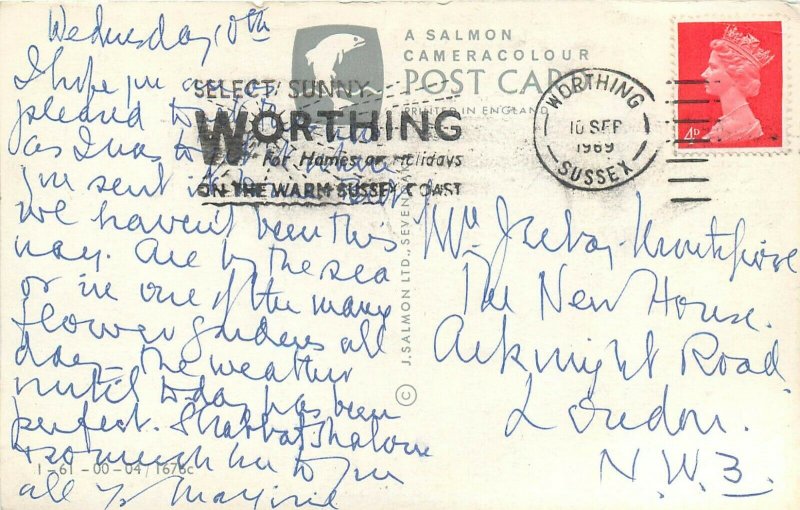 Wednesday, 10th
I hope you are as
pleased to get this
as I was to
you sent it
we haven't been this
way. Are by the sea
or in one of the many
flower gardens all
day - the weather
until today has been
perfect. Shabbat Shalom
& so much love to you
all Yr Marjorie
A SALMON
CAMERACOLOUR
POST CARD
PRINTED IN ENGLAND
SELECT SUNNY
WORTHING
For Homes or Holidays
ON THE WARM SUSSEX COAST
WORTHING
10 SEP
1969
SUSSEX
4D
© J. SALMON LTD., SEVENOAKS
Mrs Sebag-Montefiore
The New House.
Arkwright Road
London.
N.W.3.
1-61-00-04/1676c